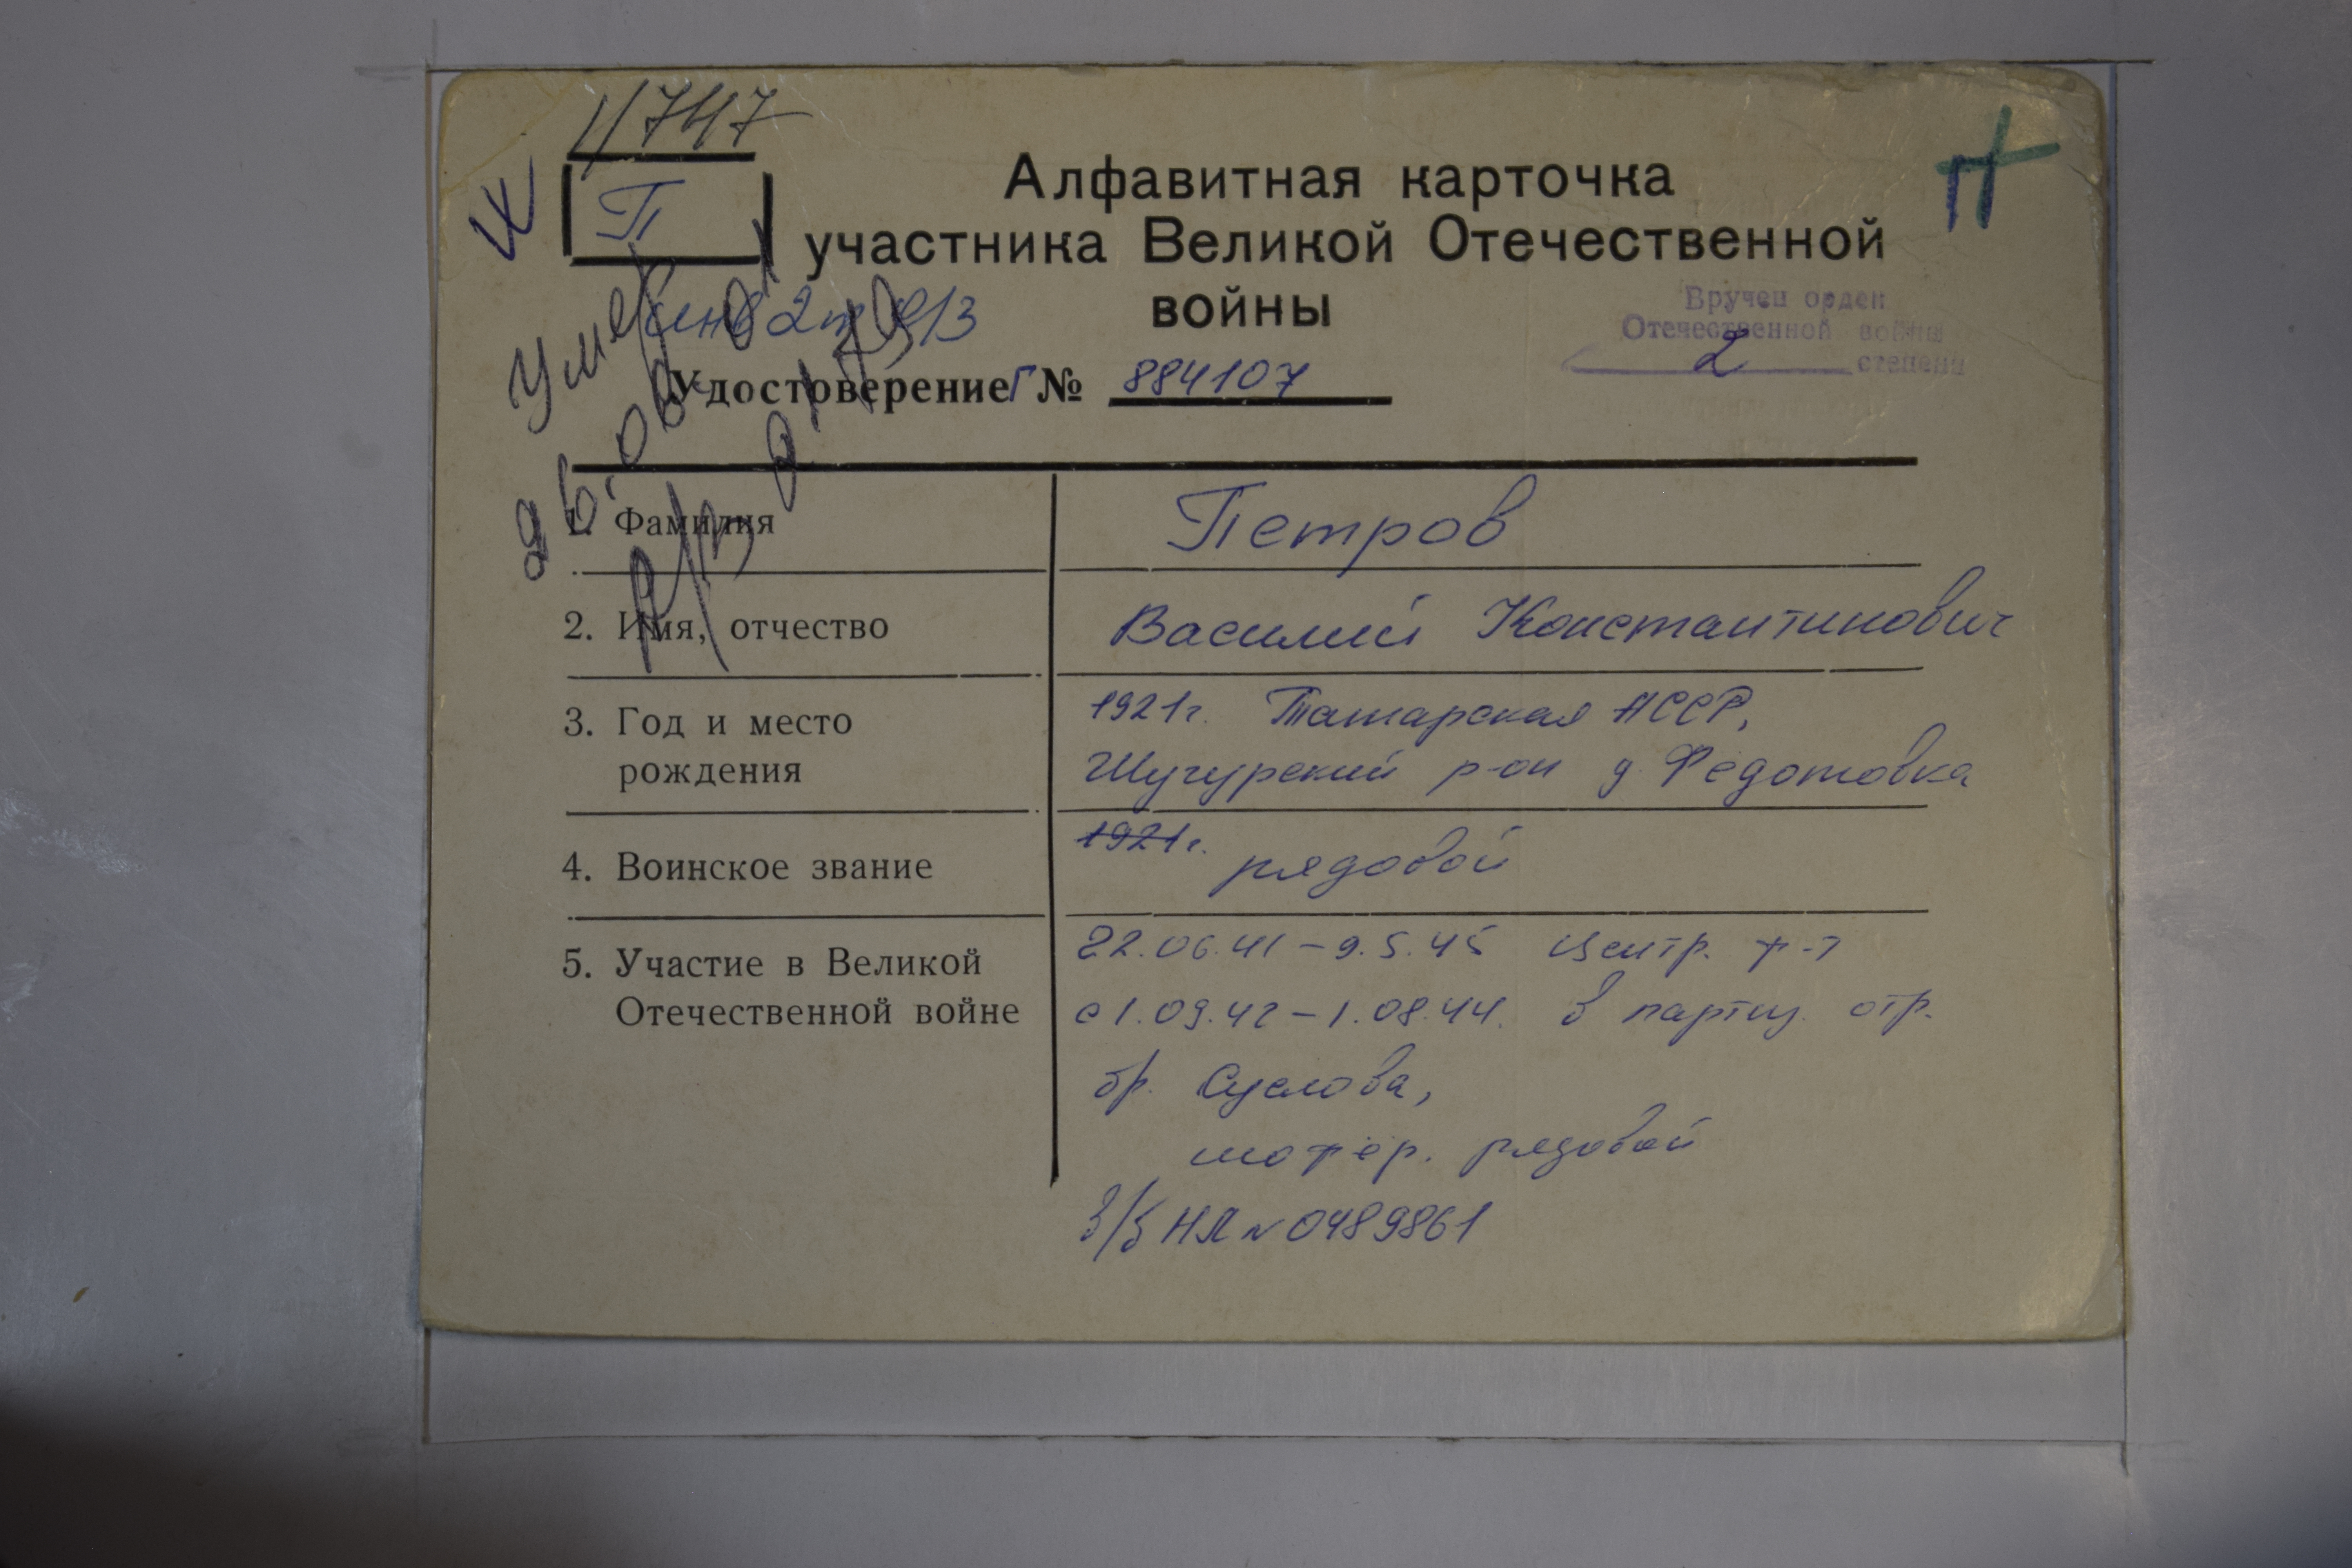 11747
П
Алфавитная карточка
участника Великой Отечественной
войны
Вручен орден
Отечественной войны
2 степени
инв 2 гр
Удостоверение Г № 884107
умер
1. Фамилия Петров
2. Имя, отчество Василий Константинович
3. Год и место 1921г. Татарская АССР,
рождения Шугурский р-он д. Федотовка
1921г.
4. Воинское звание рядовой
5. Участие в Великой 22.06.41 – 9.5.45 Центр. ф-т
Отечественной войне с 1.09.42 – 1.08.44. в партиз. отр.
бр. Суслова,
шофер. рядовой
в/б НЛ № 0489861